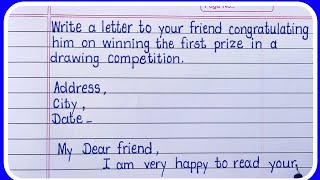 Page No.
Write a letter to your friend congratulating
him on winning the first prize in a
drawing competition.
Address,
City,
Date-
My Dear friend,
I am very happy to read your,